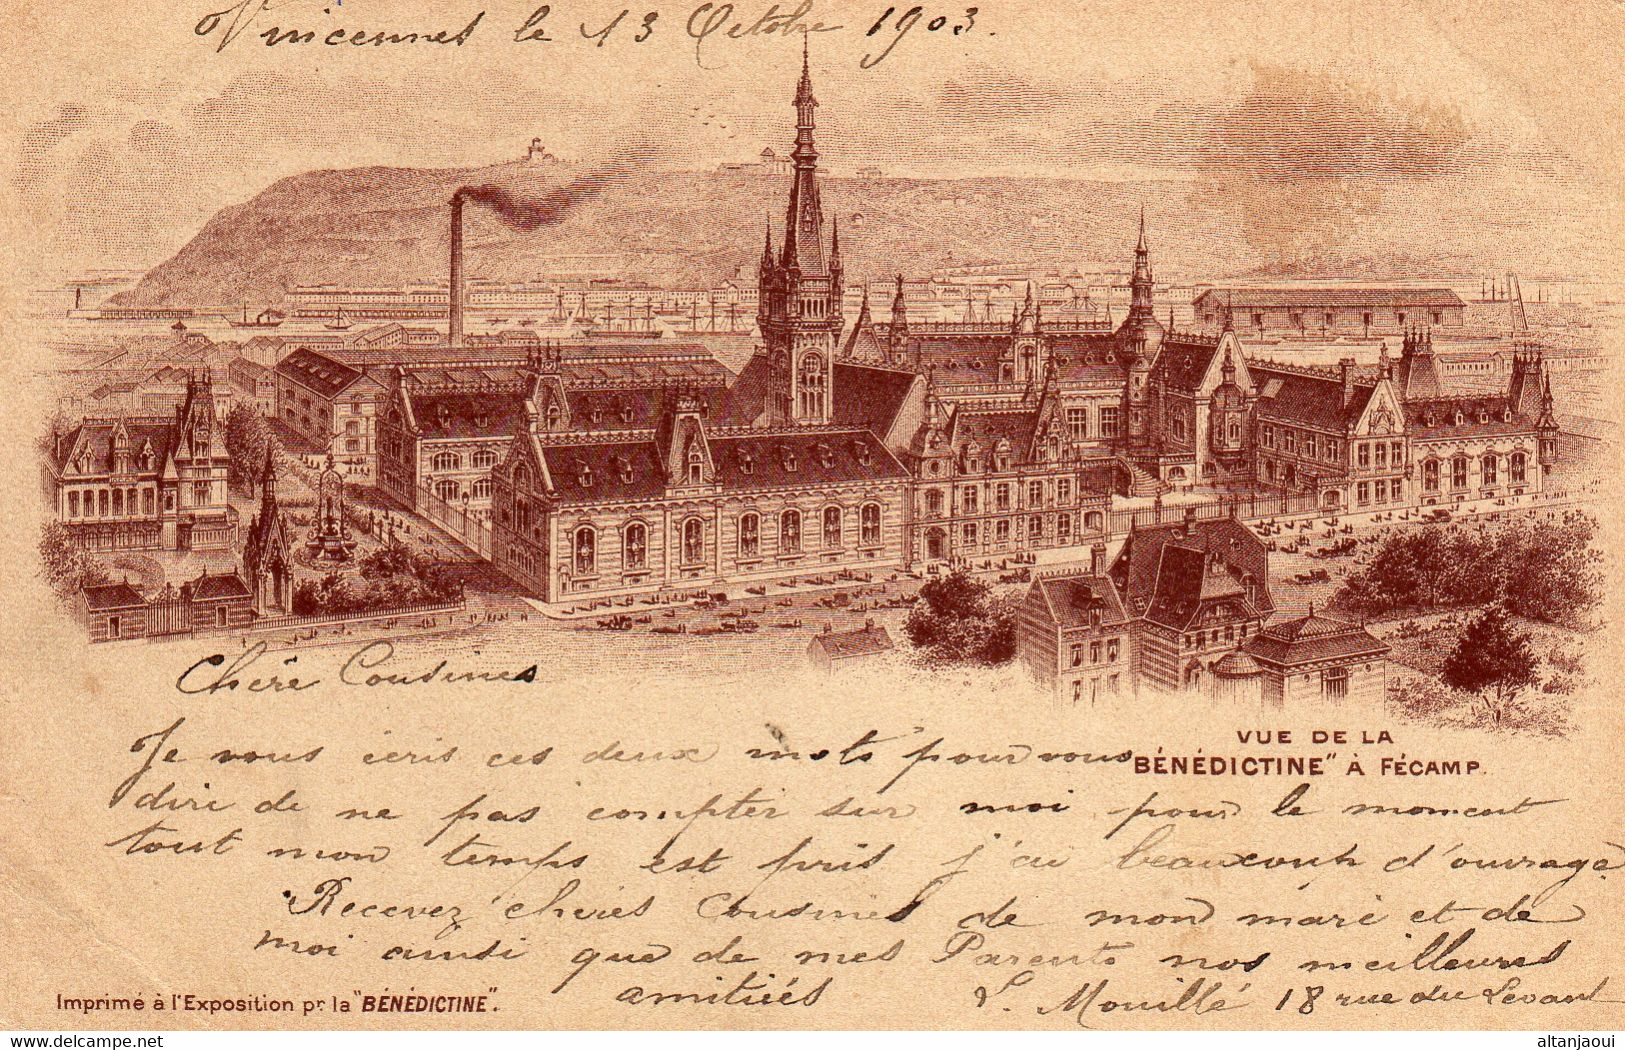 Vincennes le 13 Octobre 1903.
Chère Cousines
Je vous écris ces deux mots pour vous
dire de ne pas compter sur moi pour le moment
tout mon temps est pris j'ai beaucoup d'ouvrage
Recevez chères Cousines de mon mari et de
moi ainsi que de mes Parents nos meilleures
amitiés
L. Mouillé 18 rue du Levant
VUE DE LA
BÉNÉDICTINE" À FÉCAMP.
Imprimé à l'Exposition pr la "BÉNÉDICTINE".
delcampe.net
altanjaoui